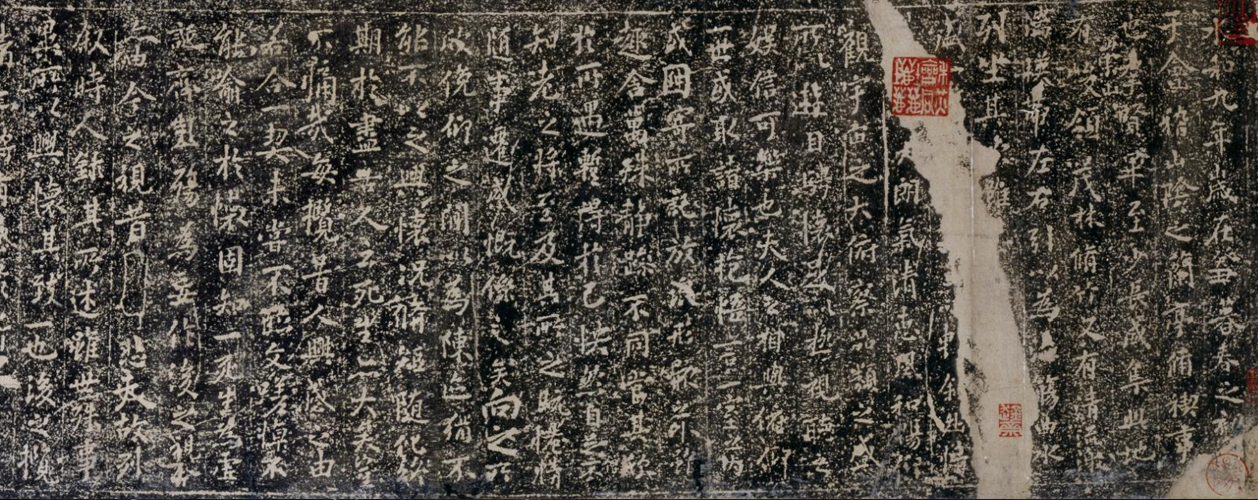 九年歲在癸丑暮春之初
于會稽山陰之蘭亭脩禊事
也羣賢畢至少長咸集此地
有峻領茂林脩竹又有清流激
湍暎帶左右引以為流觴曲水
列坐其次雖
盛幽情
天朗氣清惠風和暢仰
觀宇宙之大俯察品類之盛
所以遊目騁懷足以極視聽之
娛信可樂也夫人之相與俯仰
一世或取諸懷抱悟言一室之內
或因寄所託放浪形骸之外雖
趣舍萬殊靜躁不同當其欣
於所遇暫得於己快然自足不
知老之將至及其所之既惓情
隨事遷感慨係之矣向之所
欣俛仰之間以為陳迹猶不
能不以之興懷況脩短隨化終
期於盡古人云死生亦大矣豈
不痛哉每攬昔人興感之由
若合一契未嘗不臨文嗟悼不
能喻之於懷固知一死生為虛
誕齊彭殤為妄作後之視今
亦由今之視昔悲夫故列
敘時人錄其所述雖世殊事
異所以興懷其致一也後之攬